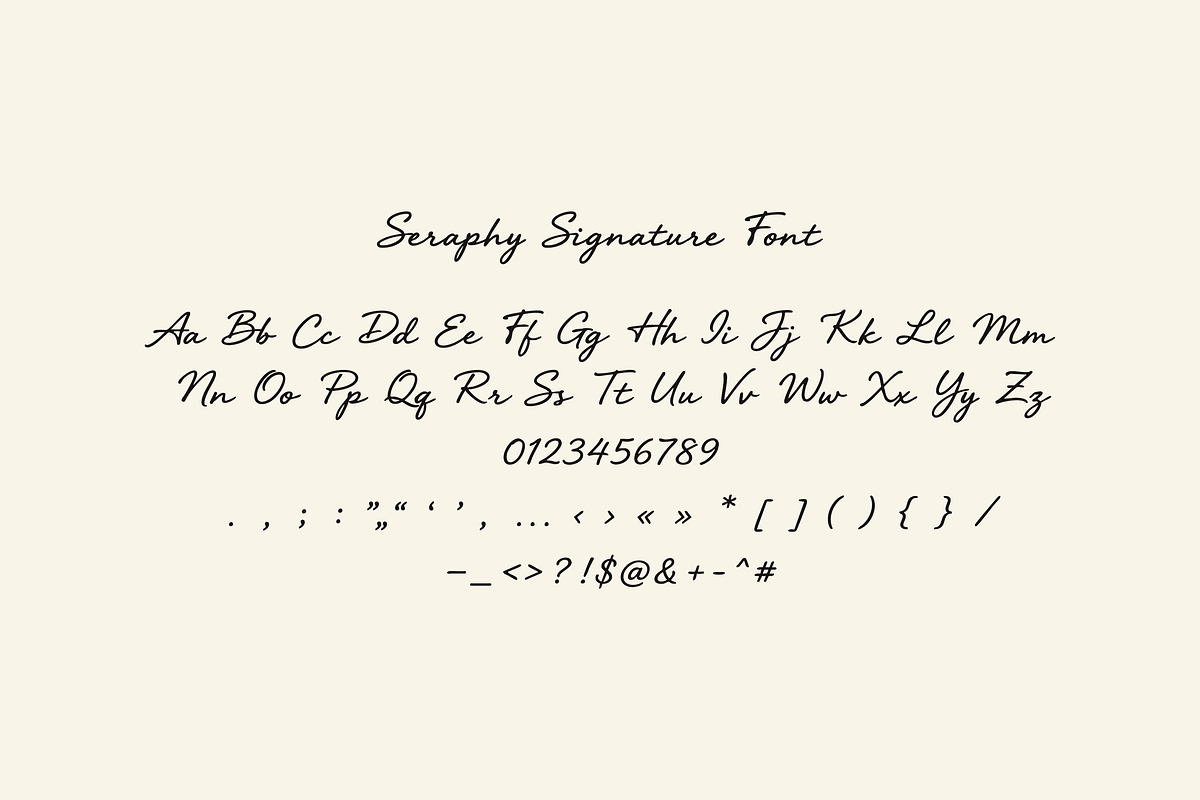 Seraphy Signature Font
Aa Bb Cc Dd Ee Ff Gg Hh Ii Jj Kk Ll Mm
Nn Oo Pp Qq Rr Ss Tt Uu Vv Ww Xx Yy Zz
0123456789
. , ; : ”„“ ‘ ’ , ... ‹ › « » * [ ] ( ) { } /
–_<>?!$@&+-^#